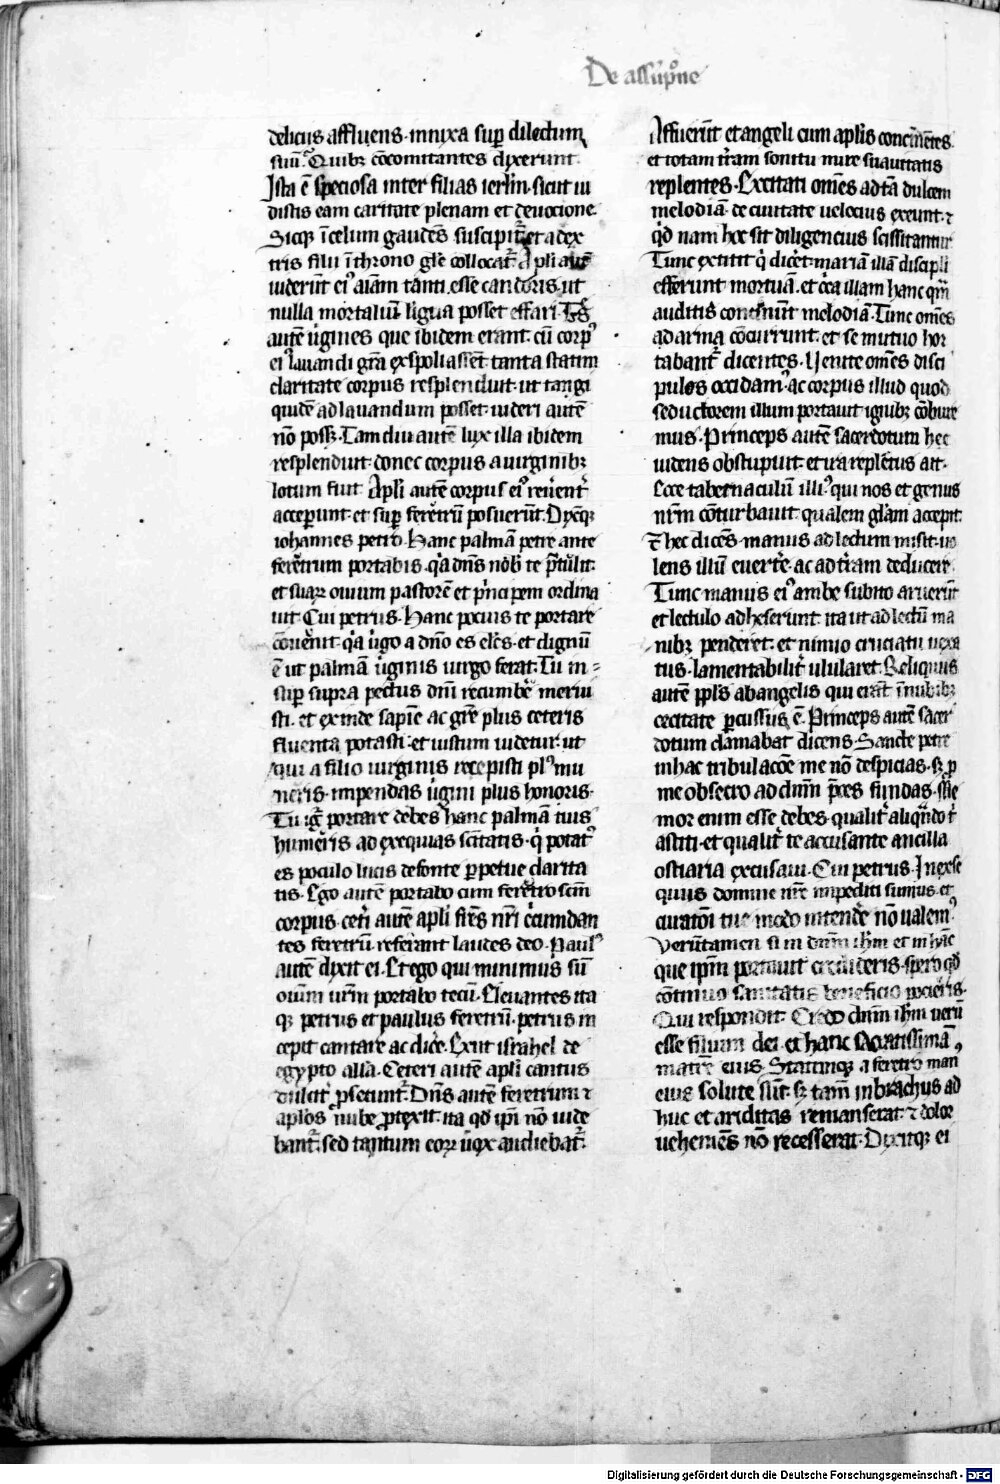 De assūpōne
delicijs affluens · innixa sup dilectum
suū · Quibȝ cōcomitantes dixerunt
Ista ē speciosa inter filias ierlm̄ · sicut ui
distis eam caritate plenam et deuocione
Sicqȝ ī celum gaudēs suscipit̄ et a dex
tris filii ī throno gl̄e collocat̄ · Apl̄i autē
uiderūt eiꝰ aīam tanti esse candoris ut
nulla mortaliū ligua posset effari · Tēs
autē ūgines que ibidem erant · cū corpꝰ
eiꝰ lauandi gr̄a exspoliassēt · tanta statim
claritate corpus resplenduit · ut tangi
quidē ad lauandum posset · uideri autē
nō posȝ · Tam diu autē lux illa ibidem
resplenduit · donec corpus a uirginibȝ
lotum fuit · Apl̄i autē corpus eiꝰ reuēnt̄
acceperunt · et sup feret̄rū posuerūt · Dixitqȝ
iohannes petro · Hanc palmā petre ante
feret̄rum portabis · q̄a dn̄s nob̄ te p̄tulit ·
et suaꝝ ouium pastorē et p̄ncipem ordina
uit · Cui petrus · Hanc pocius te portare
cōuenit · q̄a ūgo a dn̄o es elc̄s · et dignū
ē ut palmā ūginis uirgo ferat · Tu in
sup supra pectus dn̄i recumbē merui
sti · et exinde sapīe ac gr̄e plus ceteris
fluenta potasti · et iustum uidetur · ut
qui a filio uirginis recepisti plꝰ mu
neris · impendas ūgini plus honoris ·
Tu igr̄ portare debes hanc palmā tuis
humeris ad exequias sc̄itatis · q̄ potatꝰ
es poculo lucis de fonte ꝑpetue clarita
tis · Ego autē portabo cum feret̄ro sc̄m
corpus · cet̄i autē apl̄i fr̄es nr̄i c̄cumdan
tes feret̄rū · referant laudes deo · Paulꝰ
autē dixit ei · Et ego qui minimus sū
oīum ur̄m portabo tecū · Eleuantes ita
qȝ petrus et paulus feretrū · petrus in
cepit cantare ac dic̄e · Exiit israhel de
egypto all̄a · Ceteri autē apl̄i cantus
dulcit̄ p̄secunt̄ · Dn̄s autē feretrum ⁊
apl̄os nube ꝓtexit · ita qd̄ ip̄i nō uide
bant̄ · sed tantum eoꝝ uox audiebat̄ ·
Affuerūt et angeli cum apl̄is concinētes
et totam tr̄am sonitu mire suauitatis
replentes · Excitati om̄es ad tā dulcem
melodiā · de ciuitate uelocius exeunt · ⁊
qd̄ nam hoc sit diligencius scissitantur
Tunc extitit q̄ dicet · mariā illā discipl̄i
efferunt mortuā · et c̄ca illam hanc qm̄
auditis concinūt melodiā · Tunc om̄es
ad arma cōcurrunt · et se mutuo hor
tabant̄ dicentes · Uenite om̄es disci
pulos occidamꝰ · ac corpus illud quod
seductorem illum portauit ignibȝ cōbure
mus · Princeps autē sacerdotum hec
uidens obstupuit · et ira repletus ait ·
Ecce tabernaculū illiꝰ qui nos et genus
nr̄m cōturbauit · qualem gl̄am accepit ·
Et hec dicēs · manus ad lectum misit · uo
lens illū euert̄e · ac ad tr̄am deducere ·
Tunc manus eiꝰ ambe subito aruerūt
et lectulo adheserunt · ita ut ad lectū ma
nibȝ penderet · et nimio cruciatu uexa
tus · lamentabilit̄ ululáret · Reliquus
autē pp̄ls ab angelis qui erāt ī nubibȝ
cecitate ꝑcussus ē · Princeps autē sacer
dotum clamabat dicens · Sancte petre
in hac tribulacōe me nō despicias · sȝ ꝑ
me obsecro ad dn̄m p̄ces fundas · me
mor enim esse debes · qualit̄ aliqn̄do t̄
astiti · et qualit̄ te accusante ancilla
ostiaria excusaui · Cui petrus · In exse
quiis domine nr̄e impediti sumus · et
curatōi tue modo intend̄e nō ualemꝰ
Uerūtamen si in dn̄m ih̄m et in hāc
que ip̄m portauit credideris · spero qd̄
cōtinuo sanitatis beneficio pocieris ·
Qui respondit · Credo dn̄m ih̄m uerū
esse filium dei · et hanc sacratissimā
matrē eius · Statimqȝ a feretro man
eius solute sūt · sȝ tam̄ in brachiis ad
huc et ariditas remanserat · ⁊ dolor
uehemēs nō recesserat · Dixitqȝ ei
Digitalisierung gefördert durch die Deutsche Forschungsgemeinschaft - DFG